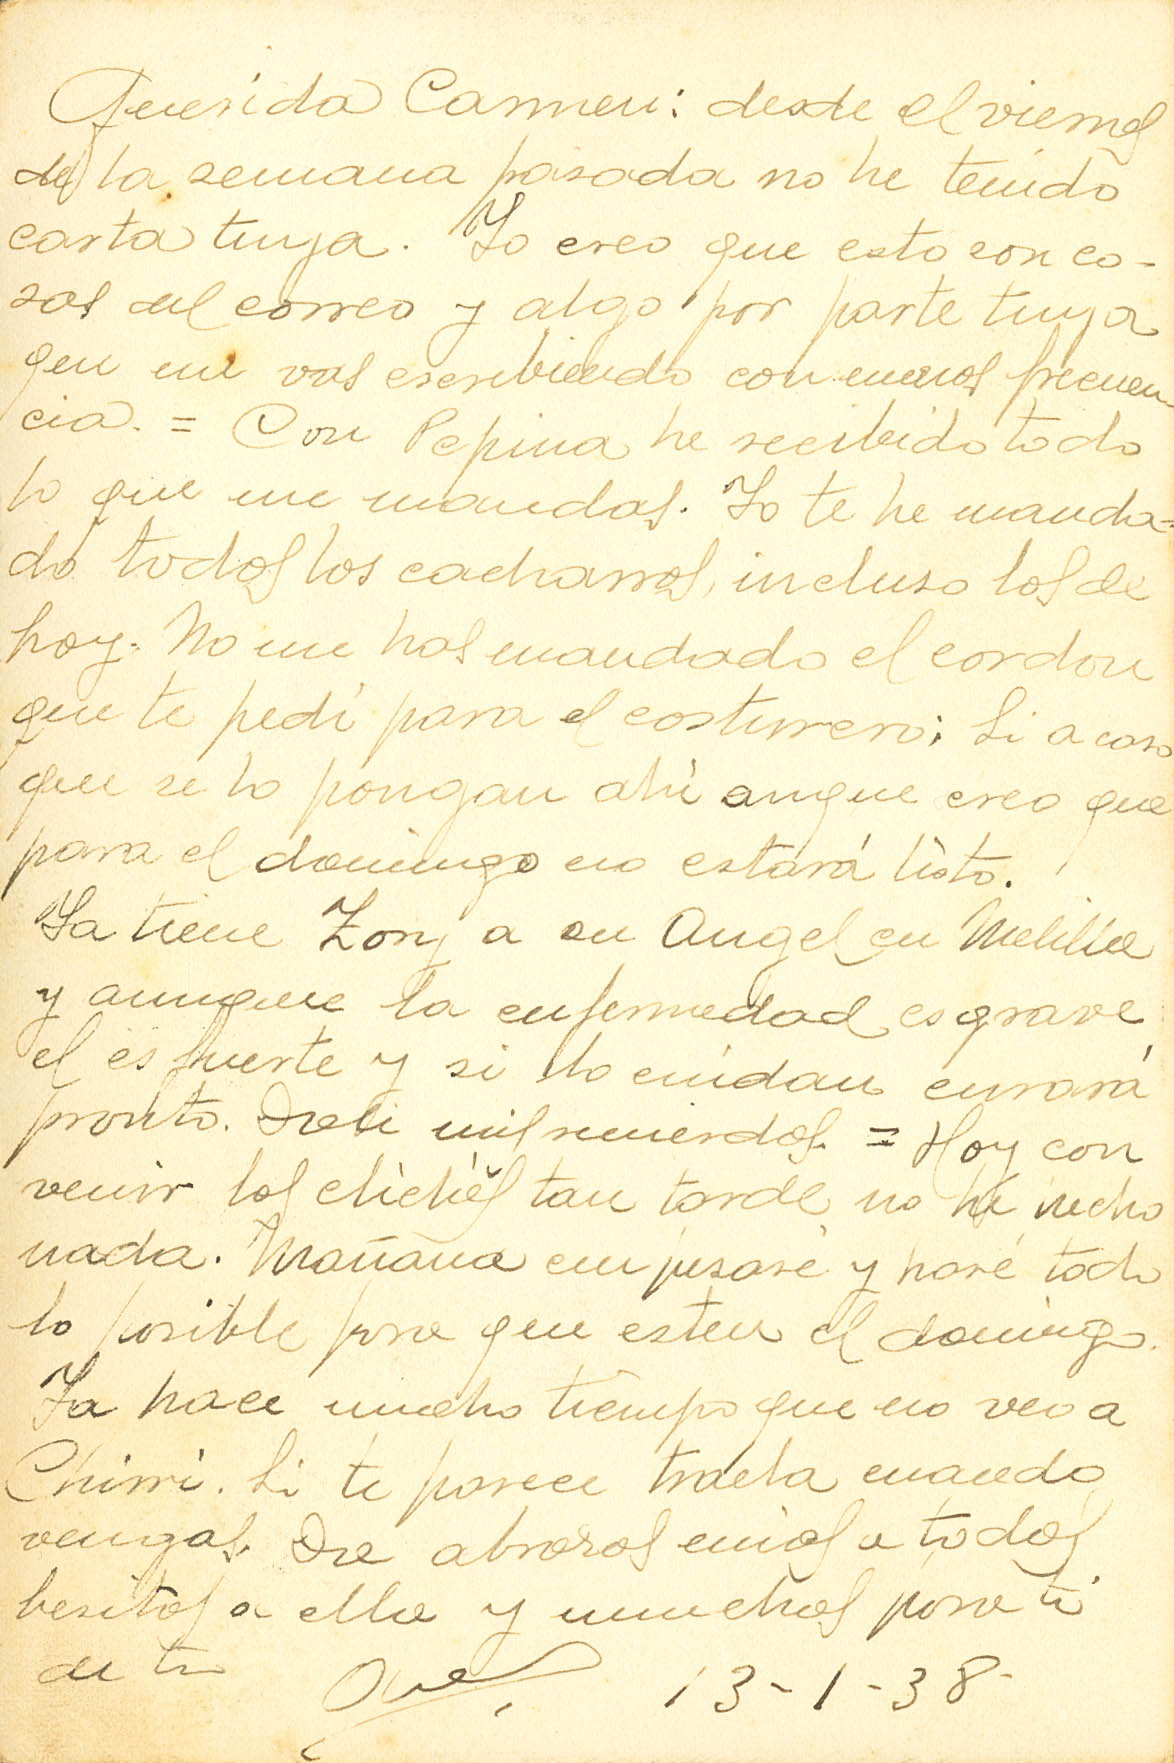 Querida Carmen: desde el viernes
de la semana pasada no he tenido
carta tuya. Yo creo que esto son co-
sas del correo y algo por parte tuya
que me vas escribiendo con menos frecuen-
cia. = Con Pepina he recibido todo
lo que me mandas. Yo te he manda-
do todos los cacharros, incluso los de
hoy. No me has mandado el cordon
que te pedí para el costurero; Si acaso
que se lo pongan ahí aunque creo que
para el domingo no estará listo.
Ya tiene Zory a su Angel en Melilla
y aunque la enfermedad es grave
el es fuerte y si lo cuidan curará
pronto. Dale mil recuerdos. = Hoy con
venir los clichés tan tarde no he hecho
nada. Mañana empezaré y haré todo
lo posible para que esten el domingo.
Ya hace mucho tiempo que no veo a
Chirri. Si te parece traela cuando
vengas. Da abrazos mios a todos
besitos a ella y muchos para ti
de tu
13-1-38-